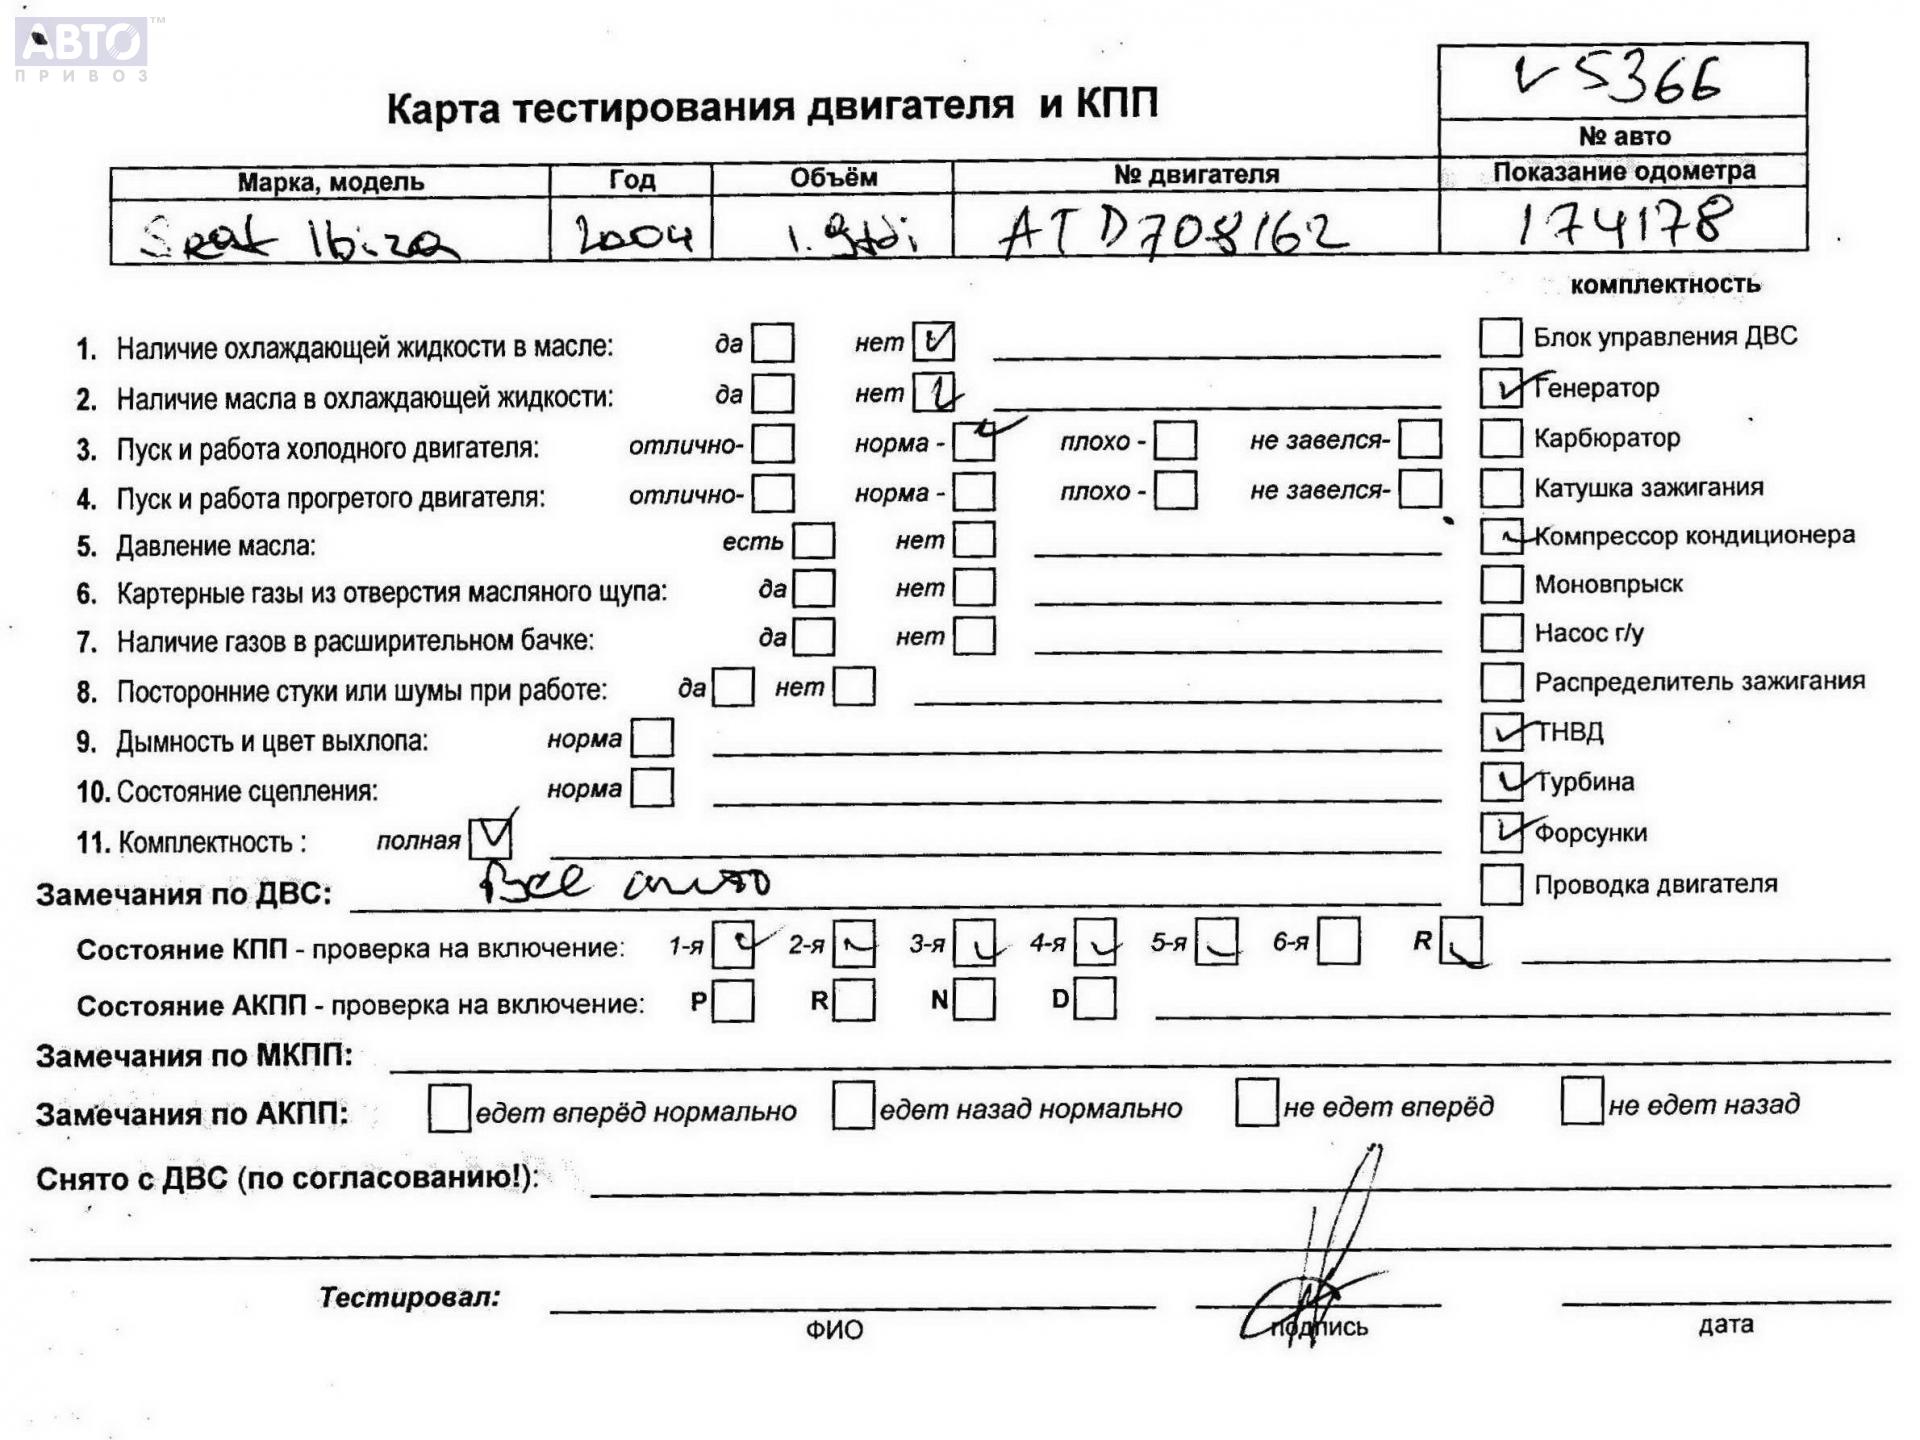 АВТО™
ПРИВОЗ
Карта тестирования двигателя и КПП
V5366
№ авто
Марка, модель Год Объём № двигателя Показание одометра
Seat Ibiza 2004 1.9tdi ATD708162 174178
комплектность
1. Наличие охлаждающей жидкости в масле: да нет Блок управления ДВС
2. Наличие масла в охлаждающей жидкости: да нет Генератор
3. Пуск и работа холодного двигателя: отлично- норма - плохо - не завелся- Карбюратор
4. Пуск и работа прогретого двигателя: отлично- норма - плохо - не завелся- Катушка зажигания
5. Давление масла: есть нет Компрессор кондиционера
6. Картерные газы из отверстия масляного щупа: да нет Моновпрыск
7. Наличие газов в расширительном бачке: да нет Насос г/у
8. Посторонние стуки или шумы при работе: да нет Распределитель зажигания
9. Дымность и цвет выхлопа: норма ТНВД
10. Состояние сцепления: норма Турбина
11. Комплектность : полная Форсунки
Замечания по ДВС: Все Проводка двигателя
Состояние КПП - проверка на включение: 1-я 2-я 3-я 4-я 5-я 6-я R
Состояние АКПП - проверка на включение: P R N D
Замечания по МКПП:
Замечания по АКПП: едет вперёд нормально едет назад нормально не едет вперёд не едет назад
Снято с ДВС (по согласованию!):
Тестировал:
ФИО подпись дата